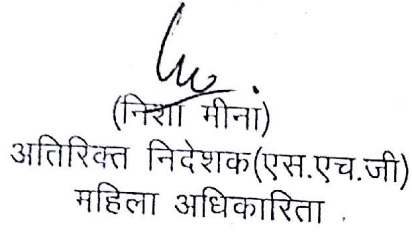 (निशा मीना)
अतिरिक्त निदेशक(एस.एच.जी)
महिला अधिकारिता